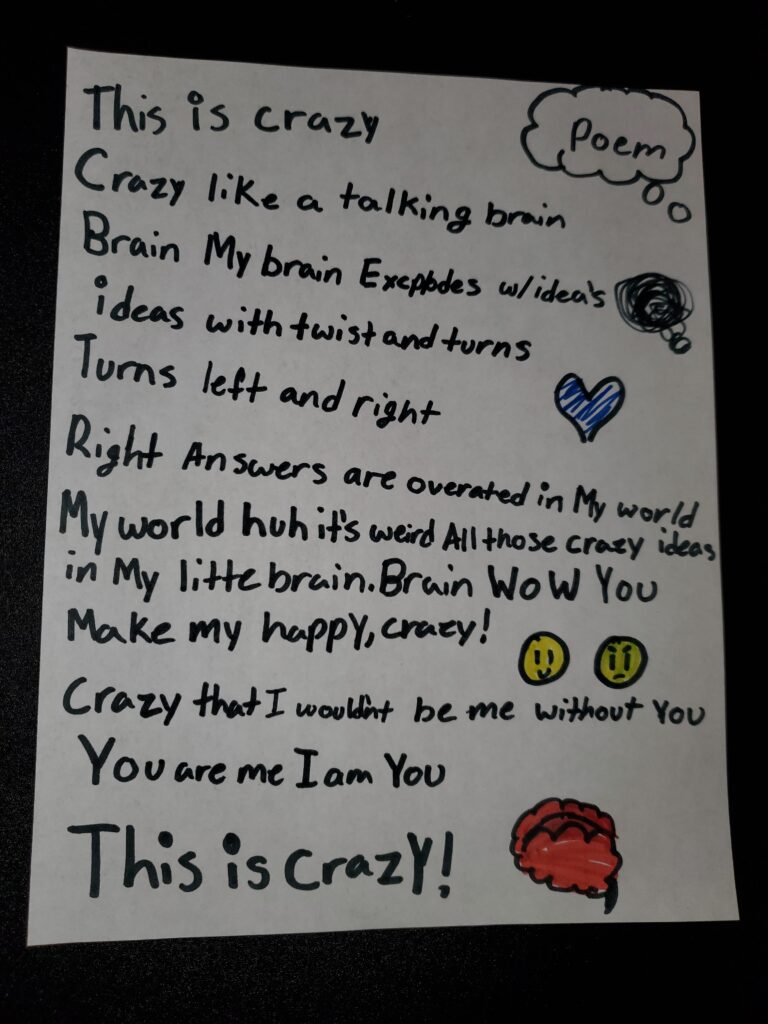 Poem
This is crazy
Crazy like a talking brain
Brain My brain Excplodes w/idea's
ideas with twist and turns
Turns left and right
Right Answers are overated in My world
My world huh it's weird All those crazy ideas
in My litte brain. Brain WoW You
Make my happy, crazy!
Crazy that I wouldn't be me without You
You are me I am You
This is crazy!